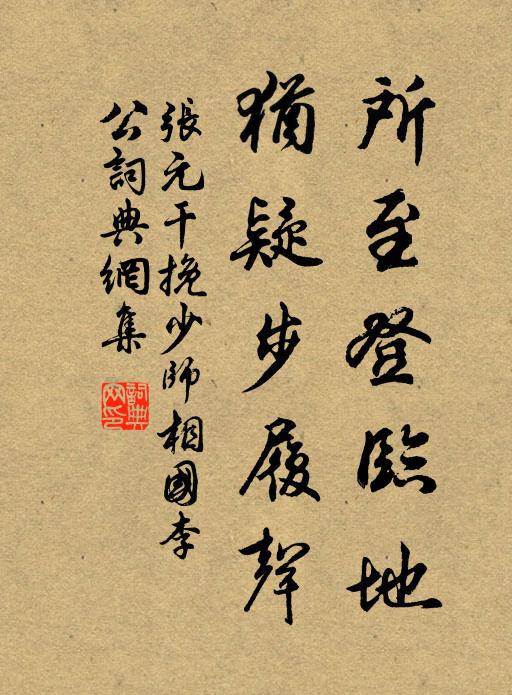 所至登臨地
猶疑步履聲
張元干挽少師相國李
公詞典網集
詞典網印